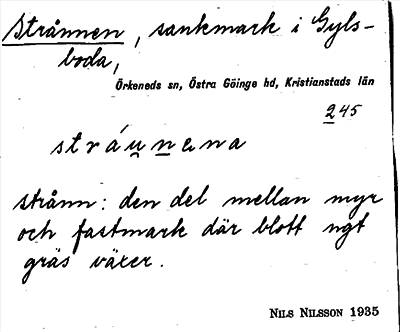 Strånnen, sankmark i Gyls-
boda,
Örkeneds sn, Östra Göinge hd, Kristianstads län
245
stránna
strånn: den del mellan myr
och fastmark där blott ngt
gräs växer.
NILS NILSSON 1935